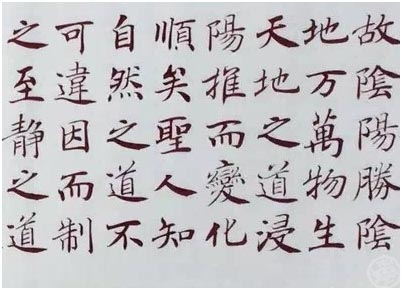 故陰陽勝陰
地万萬物生
天地之道浸
陽推而變化
順矣聖人知
自然之道不
可違因而制
之至靜之道